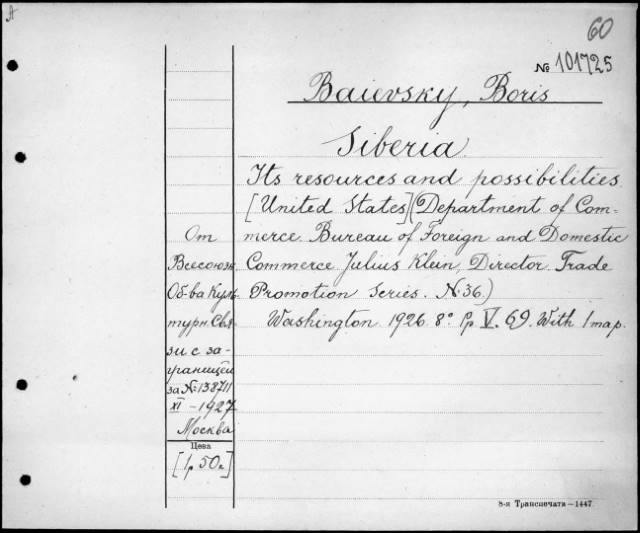 A
60
№ 101725
Baievsky, Boris
Siberia.
Its resources and possibilities.
[United States] (Department of Com-
merce. Bureau of Foreign and Domestic
Commerce. Julius Klein, Director. Trade
Promotion Series. N. 36.)
Washington. 1926. 8° Pp. V. 69. With 1 map.
От
Всесоюзн.
Об-ва Куль-
турн. Свя-
зи с за-
границей
за № 138711
XI - 1927
Москва
Цена
[1 р. 50 к.]
8-я Транспечать — 1447.